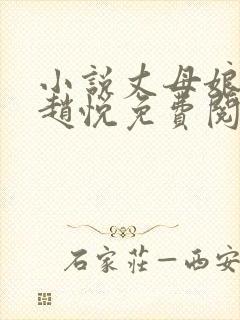 小説丈母娘
趙悅免費閱
石家莊—西安